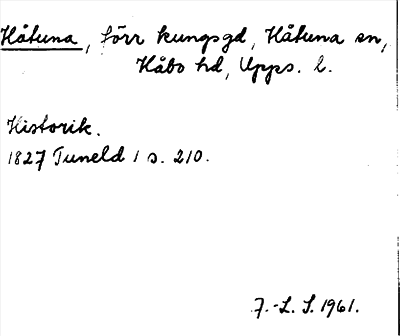 Håtuna, förr kungsgd, Håtuna sn,
Håbo hd, Upps. l.
Historik.
1827 Tuneld 1 s. 210.
7.-L. S. 1961.